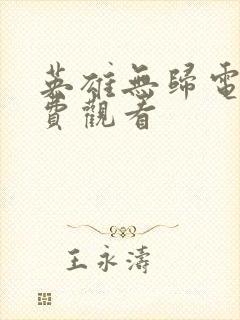 英雄無歸電
費觀看
王永濤